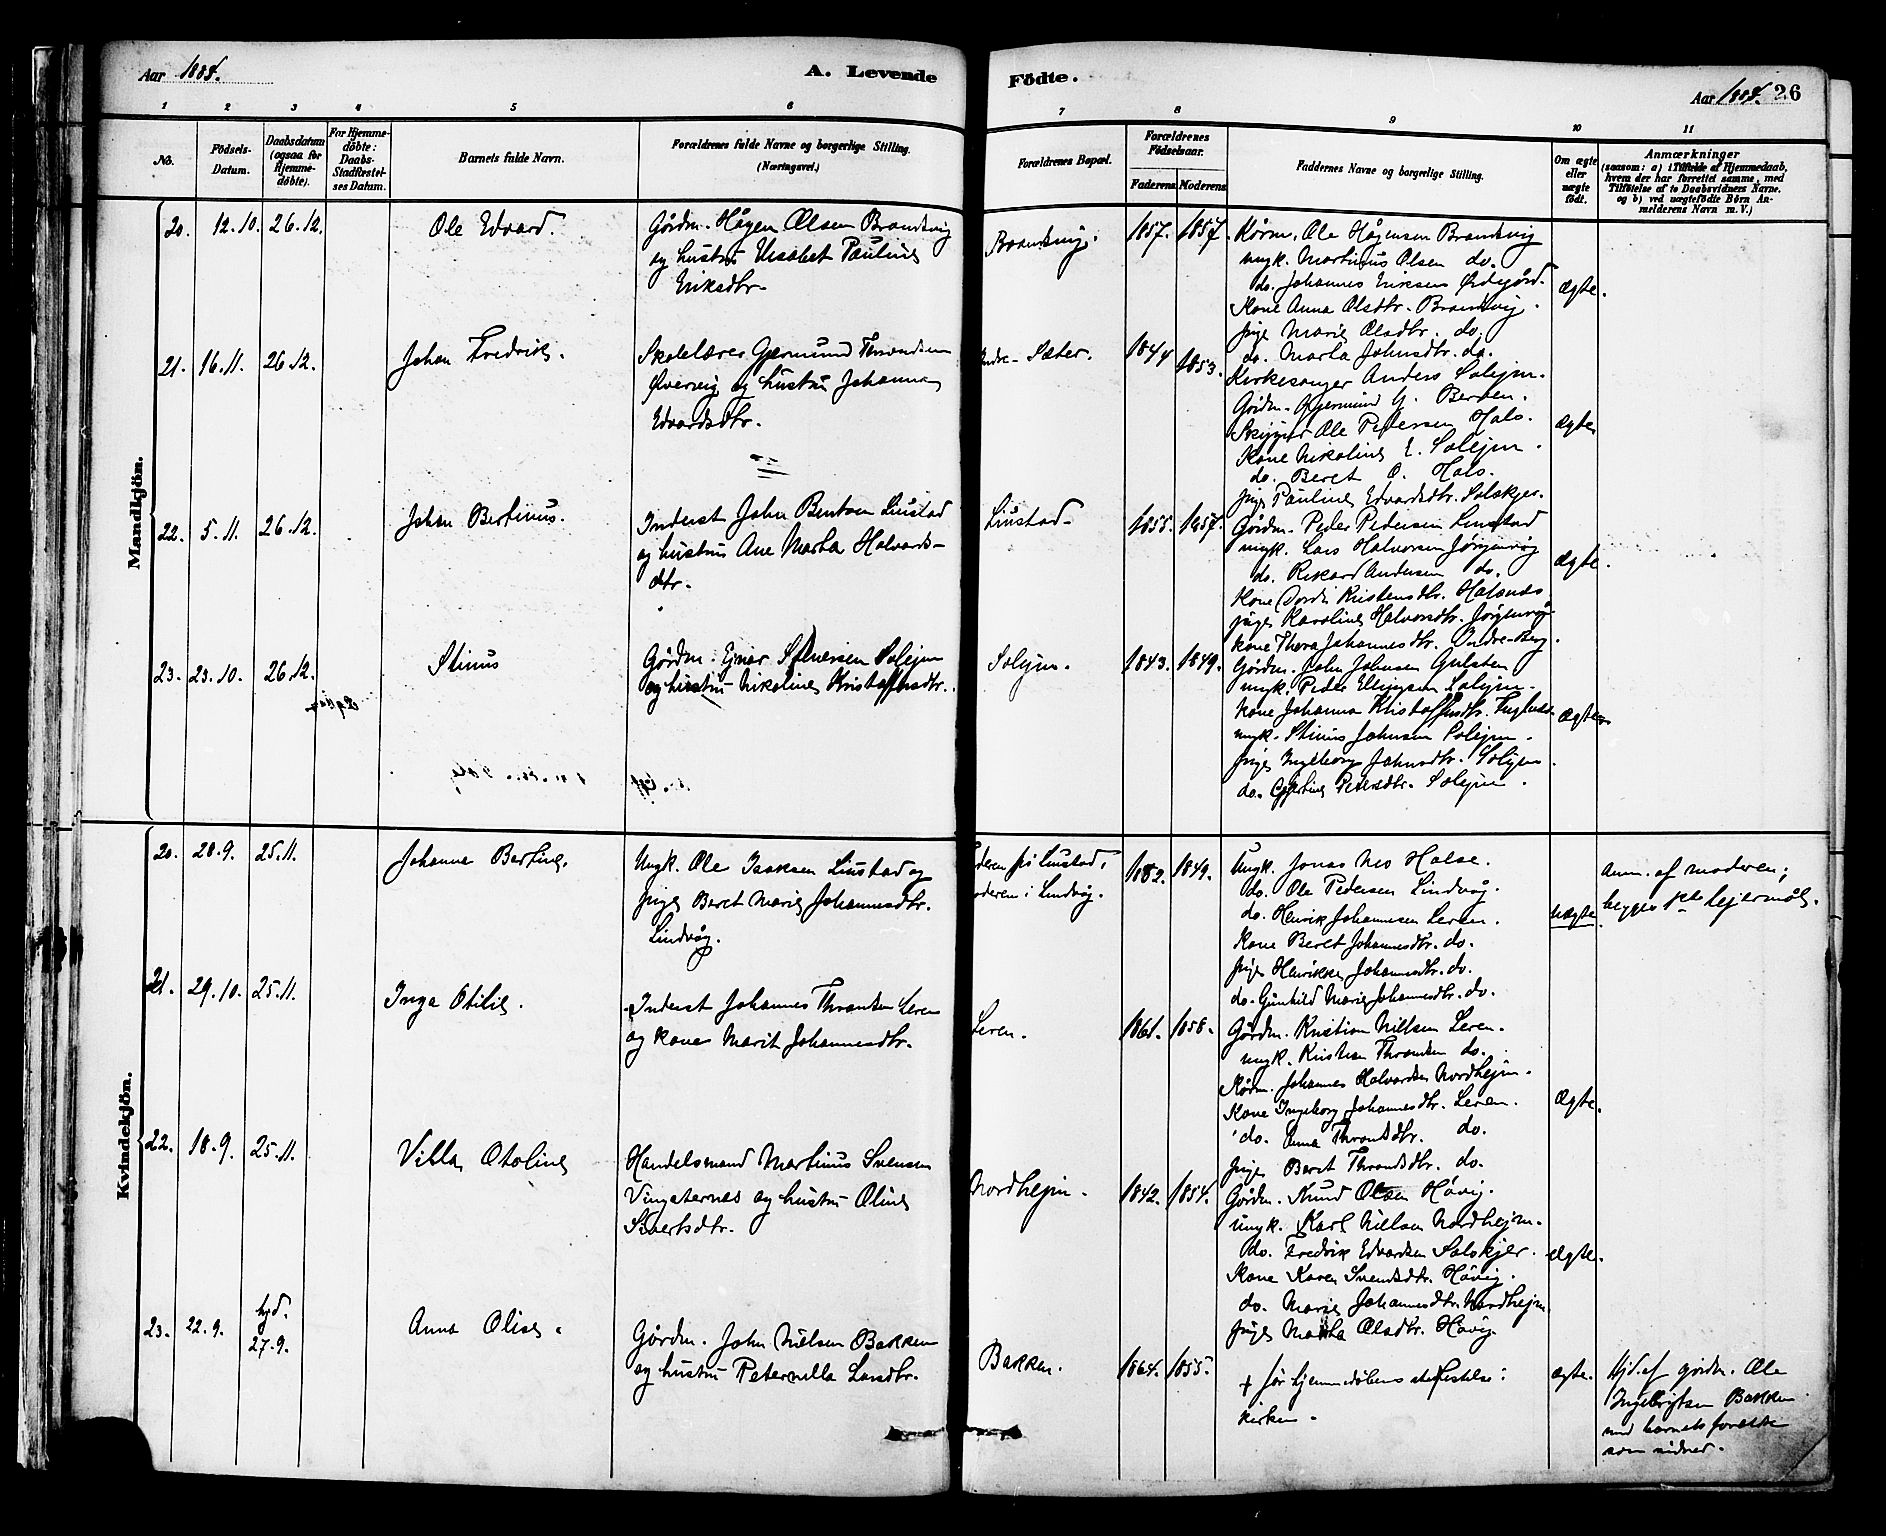 Aar 1888.
A. Levende
Födte.
Aar 1888. 26
1 2 3 4 5 6 7 8 9 10 11
No.
Födsels-Datum.
Daabsdatum (ogsaa for Hjemme-döbte).
For Hjemme-döbte: Daabs-Stadfæstel-ses Datum.
Barnets fulde Navn.
Forældrenes fulde Navne og borgerlige Stilling. (Næringsvei.)
Forældrenes Bopæl.
Forældrenes Födselsaar.
Faderens Moderens
Faddernes Navne og borgerlige Stilling.
Om ægte eller uægte födt.
Anmærkninger
(saasom: a) i Tilfælde af Hjemmedaab,
hvem der har forrettet samme, med
Tilföielse af to Daabsvidners Navne.
og b) ved uægtefödte Börn An-
melderens Navn m. V.)
Mandkjön.
20. 12.10. 26.12. Ole Edvard.
Gårdm. Hågen Olsen Brandsvig
og hustru Elisabet Pauline
Eriksdtr.
Brandsvig. 1857. 1857.
Kårm. Ole Hågensen Brandsvig
ungk. Martinus Olsen do.
do. Johannes Eriksen Ødegård.
Kone Anna Olsdtr. Brandsvig.
pige Marie Olsdtr. do.
do. Marta Johnsdtr. do.
Ægte.
21. 16.11. 26.12. Johan Fredrik.
Skolelærer Gjermund Throndsen
Øvervig og hustru Johanna
Edvardsdtr.
Indre-Sæter. 1844 1853.
Kirkesanger Anders Solejm.
Gårdm. Gjermund G. Berven.
Skipper Ole Petersen Hals.
Kone Nikoline E. Solejm.
do. Beret O. Hals.
pige Pauline Edvardsdtr. Solskjer.
Ægte
22. 5.11. 26.12. Johan Bertinus.
Inderst John Bentsen Liustad
og hustru Ane Marta Halvards-
dtr.
Liustad. 1855. 1857.
Gårdm. Peder Pedersen Liustad
ungk. Lars Halvorsen Jørgenvåg
do. Rikard Andersen do.
Kone Dordi Kristensdtr. Halsnes
pige Karoline Halvorsdtr. Jørgenvåg
kone Thora Johannesdtr. Indre-Berg.
Ægte.
23. 23.10. 26.12. Stinus
Gårdm. Ejner Stenersen Solejm
og hustru Nikoline Kristoffersdtr.
Solejm. 1843. 1849.
Gårdm. John Johnsen Gulsten
ungk. Peder Ellingsen Solejm.
kone Johanna Kristoffersdtr.
ungk. Stinus Johnsen Solejm.
pige Ingeborg Johnsdtr. Solejm.
do. Gjertine Petersdtr. Solejm.
Ægte
Kvindekjön.
20. 28.9. 25.11. Johanna Bertine.
Ungk. Ole Isaksen Liustad og
pige Beret Marie Johannesdtr.
Lindvåg.
Faderen på Liustad,
moderen i Lindvåg. 1862. 1849.
Ungk. Jonas Halse.
do. Ole Pedersen Lindvåg.
do. Henrik Johannesen Leren.
Kone Beret Johannesdtr. do.
pige Henrikke Johannesdtr. do.
do. Gunhild Marie Johannesdtr. do.
Uægte
Anm. af moderen;
begges 1ste lejermål.
21. 29.10. 25.11. Inga Otilie.
Inderst Johannes Thronsen Leren
og kone Marit Johannesdtr.
Leren. 1861. 1858.
Gårdm. Kristian Nilsen Leren.
ungk. Kristian Thronsen do.
Kårm. Johannes Halvardsen Nordhejm.
Kone Ingeborg Johannesdtr. Leren.
do. Anna Thronsdtr. do.
pige Beret Throndsdtr. do.
Ægte.
22. 18.9. 25.11. Villa Otoline
Handelsmand Martinus Svensen
Vingsternes og hustru Oline
Sivertsdtr.
Nordhejm. 1842. 1854.
Gårdm. Knud Olsen Håvig.
Ungk. Karl Nilsen Nordhejm.
do. Fredrik Edvardsen Solskjer.
Kone Karen Svendsdtr. Håvig.
do. Marie Johannesdtr. Nordhejm
pige Marta Olsdtr. Håvig.
Ægte.
23. 22.9. hjd. 27.9. Anna Olise.
Gårdm. John Nilsen Bakken
og hustru Peternella Larsdtr.
Bakken. 1864. 1855.
+ før hjemmedåbens stadfestelse i
kirken.
Ægte.
Hjd. af gårdm. Ole
Ingebrigtsen Bakken
med barnets forældre
som vidner.